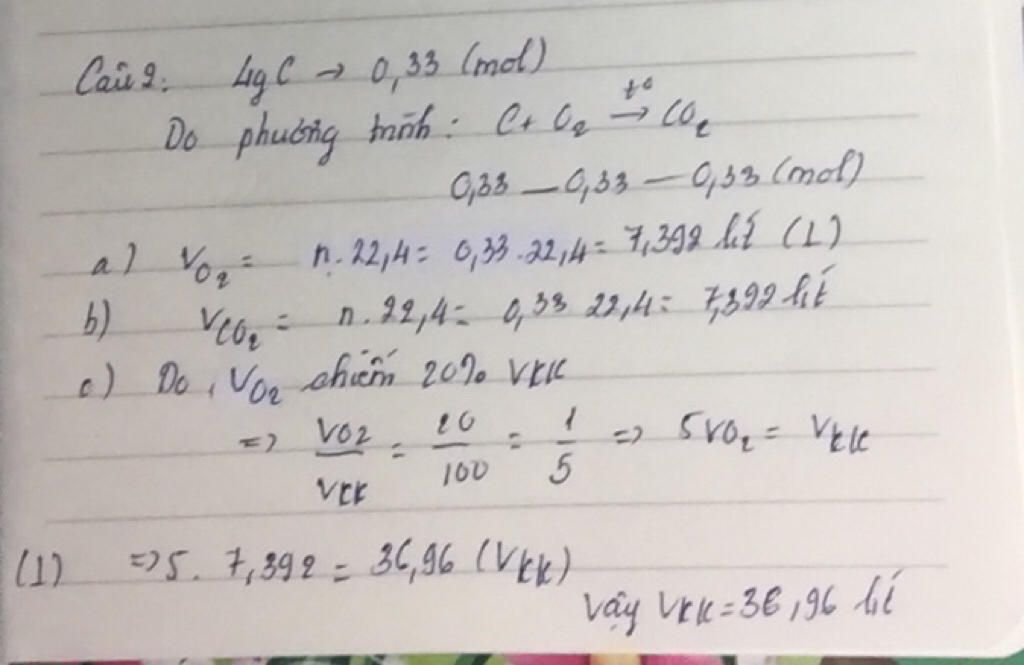 Câu 2: 4g C → 0,33 (mol)
Do phương trình: C + O₂ →(t°) CO₂
0,33 — 0,33 — 0,33 (mol)
a) VO₂ = n.22,4 = 0,33.22,4 = 7,392 lít (1)
b) VCO₂ = n.22,4 = 0,33 22,4 = 7,392 lít
c) Do VO₂ chiếm 20% VKK
=> VO2/VKK = 20/100 = 1/5 => 5VO₂ = VKK
(1) => 5. 7,392 = 36,96 (VKK)
Vậy VKK = 36,96 lít